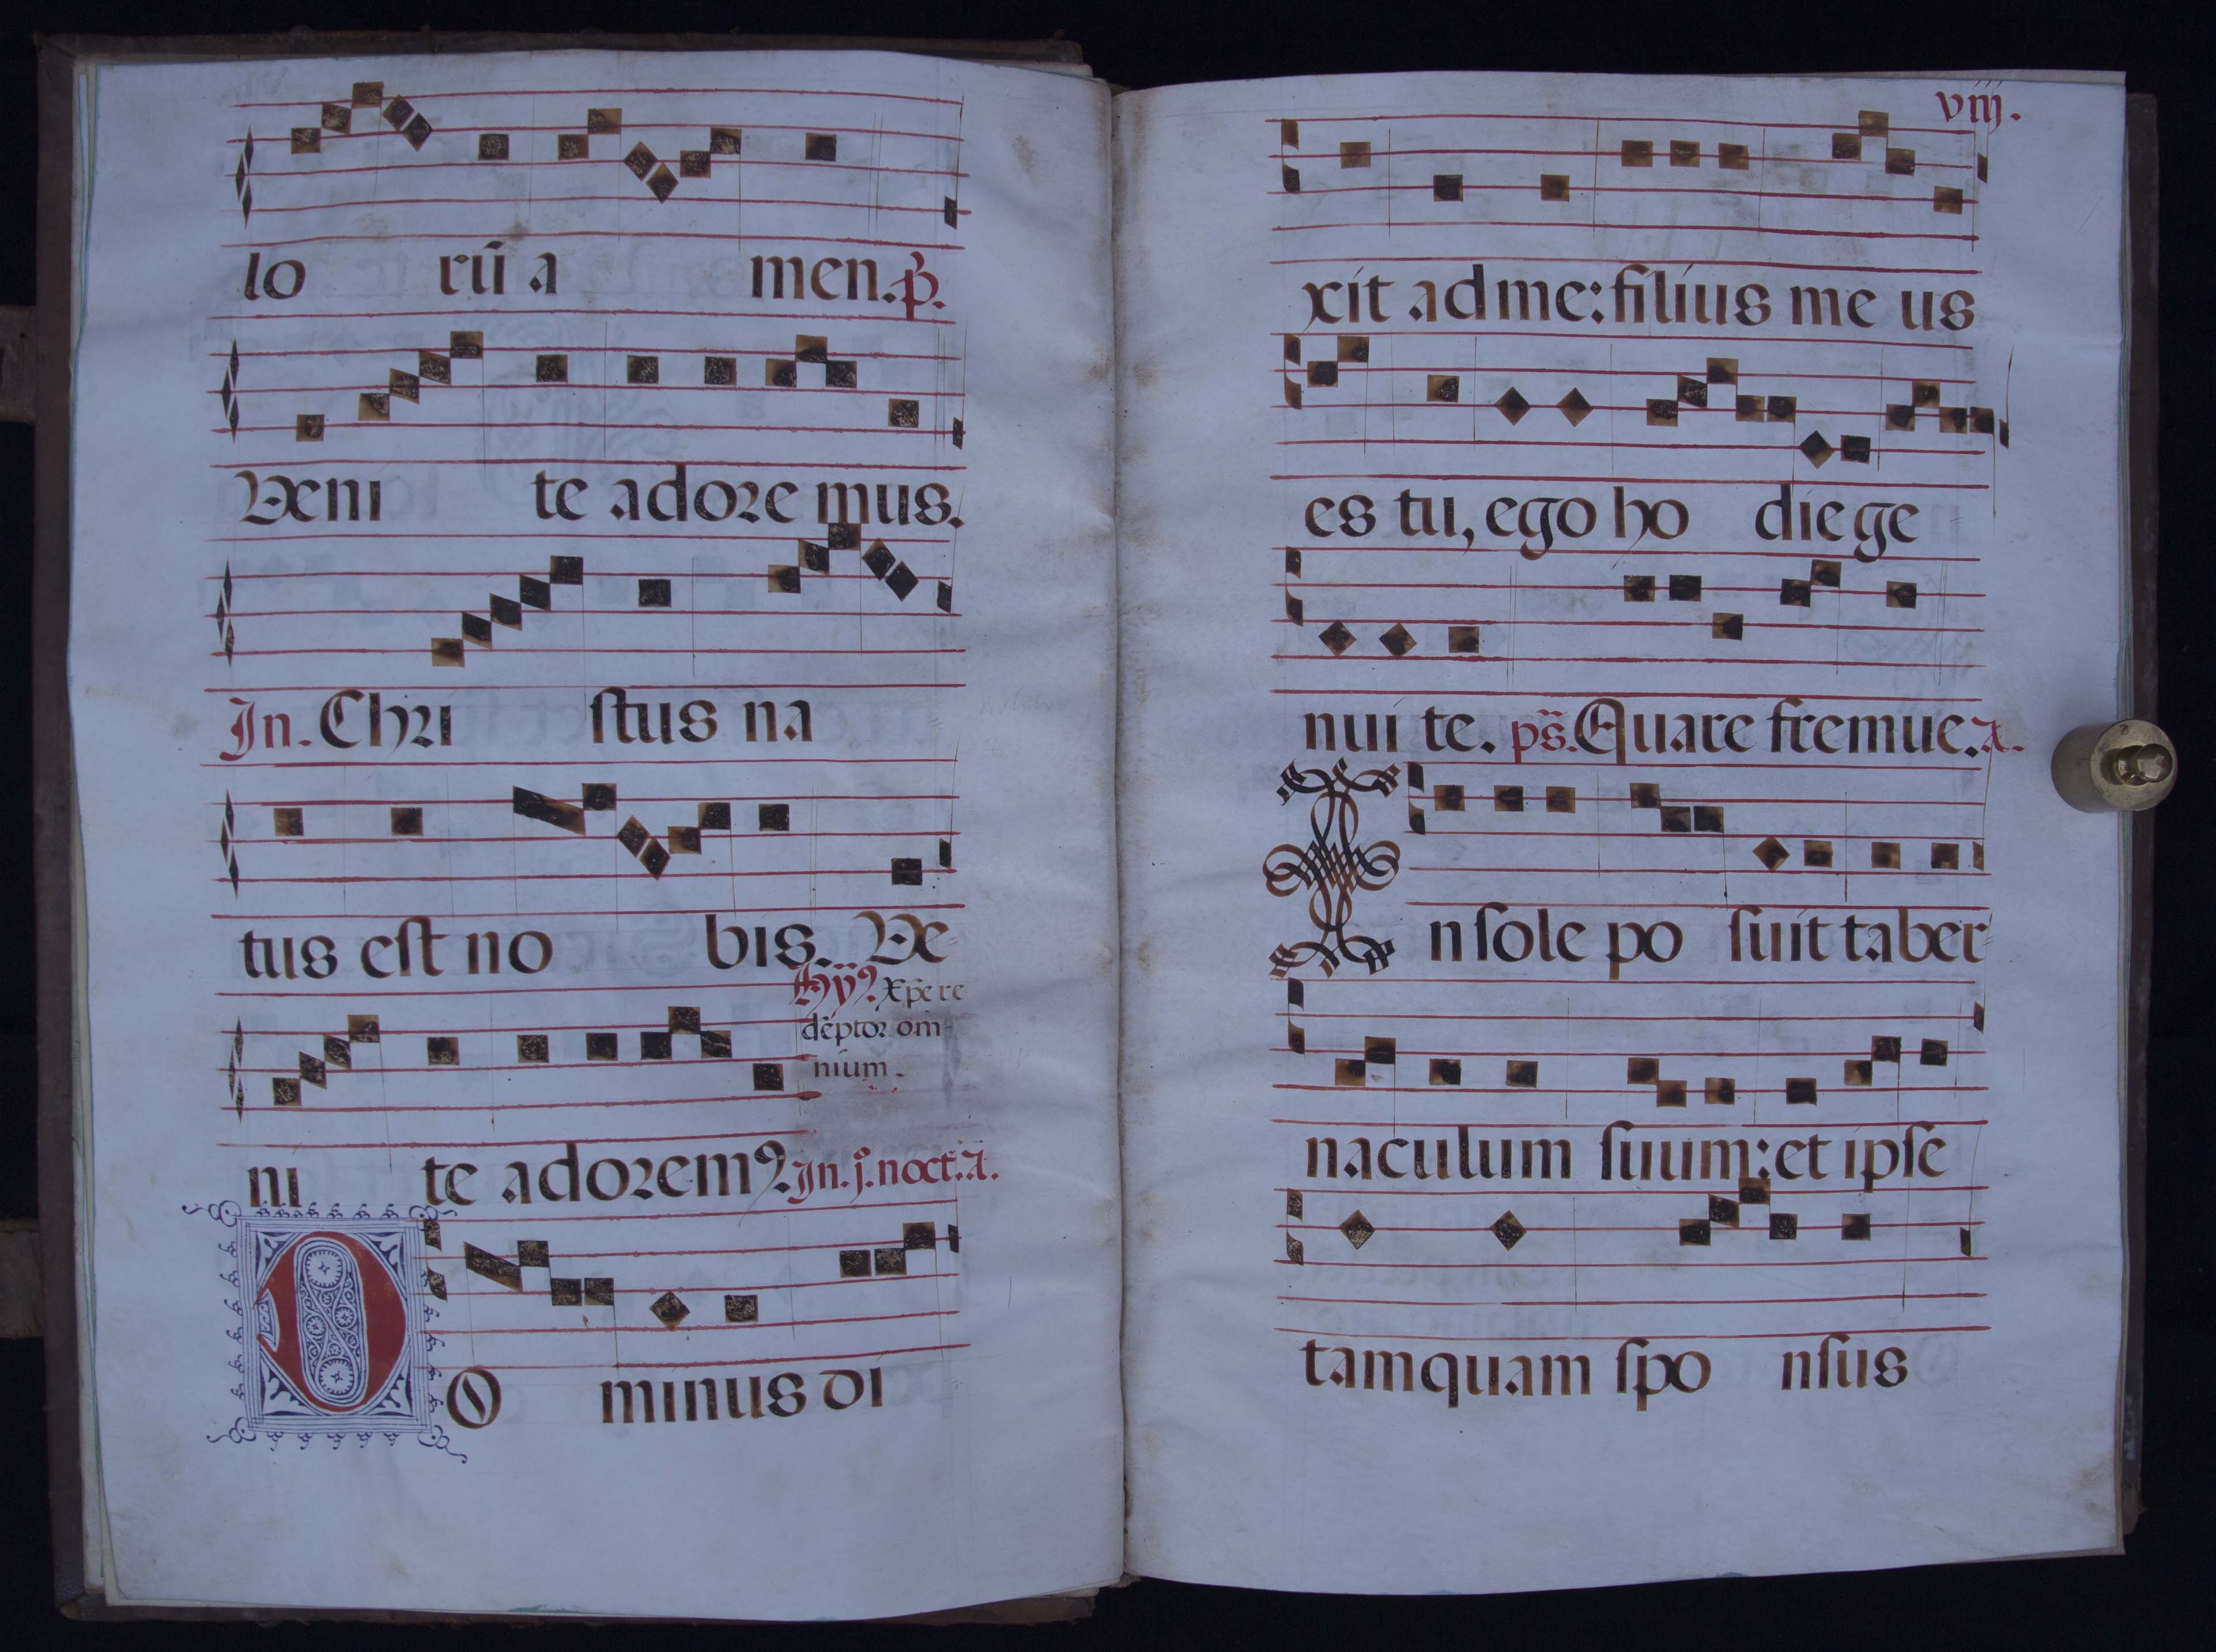 lo rũ a men. p̃.
Veni te adore mus.
In. Chri ſtus na
tus eſt no bis. Ve
Hyꝰ. xp̃e re
dẽptor om-
nium.
ni te adoremꝰ. In. j. noct. a.
D O minus di
viij.
xit ad me: filius me us
es tu, ego ho die ge
nui te. ps̃. Quare fremue. a.
I n ſole po ſuit taber-
naculum ſuum: et ipſe
tamquam ſpo nſus